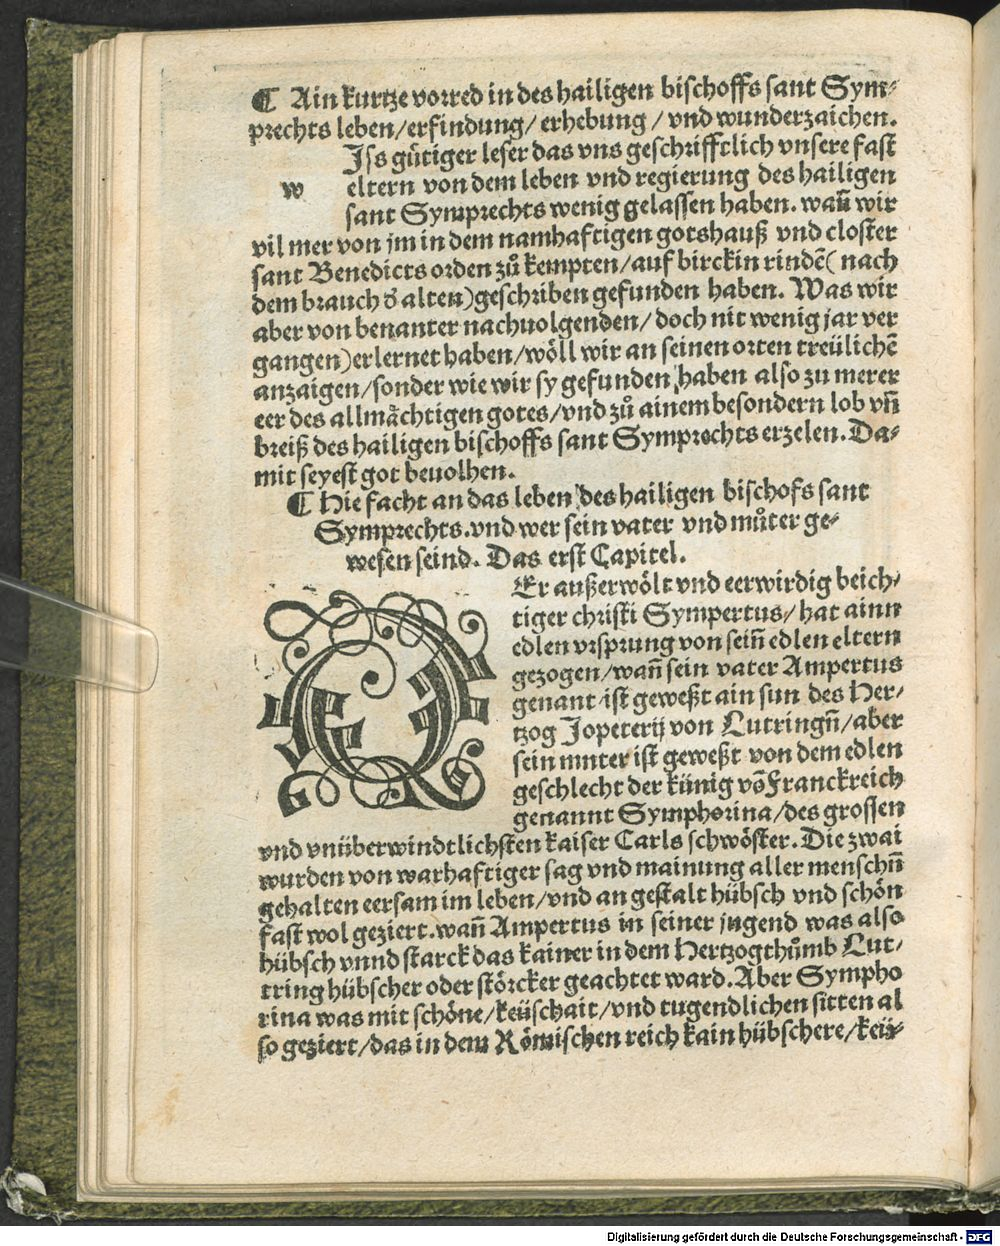 ¶ Ain kurtze vorred in des hailigen bischoffs sant Sym-
prechts leben/erfindung/ erhebung / vnd wunderzaichen.
Jss gütiger leser das vns geschrifftlich vnsere fast
w eltern von dem leben vnd regierung des hailigen
sant Symprechts wenig gelassen haben. wañ wir
vil mer von jm in dem namhaftigen gotshauß vnd closter
sant Benedicts orden zů kempten/auf birckin rindē( nach
dem brauch d' alten)geschriben gefunden haben. Was wir
aber von benanter nachuolgenden/ doch nit wenig jar ver
gangen)erlernet haben/wöll wir an seinen orten treülichē
anzaigen/sonder wie wir sy gefunden haben also zu merer
eer des allmächtigen gotes/vnd zů ainem besondern lob vñ
breiß des hailigen bischoffs sant Symprechts erzelen. Da-
mit seyest got beuolhen.
¶ Hie facht an das leben des hailigen bischofs sant
Symprechts.vnd wer sein vater vnd můter ge-
wesen seind. Das erst Capitel.
Er außerwölt vnd eerwirdig beich-
tiger christi Sympertus/ hat ainn
edlen vrsprung von seiñ edlen eltern
gezogen/wañ sein vater Ampertus
genant ist geweßt ain sun des Her-
tzog Jopeterij von Lutringñ/aber
sein muter ist geweßt von dem edlen
geschlecht der künig vō Franckreich
genannt Symphorina/des grossen
vnd vnüberwindtlichsten kaiser Carls schwöster. Die zwai
wurden von warhaftiger sag vnd mainung aller menschñ
gehalten eersam im leben/vnd an gestalt hübsch vnd schön
fast wol geziert.wañ Ampertus in seiner jugend was also
hübsch vnnd starck das kainer in dem Hertzogthůmb Lut-
tring hübscher oder störcker geachtet ward. Aber Sympho
rina was mit schöne/keüschait/vnd tugendlichen sitten al
so geziert/das in dem Römischen reich kain hübschere/keü-
Digitalisierung gefördert durch die Deutsche Forschungsgemeinschaft - DFG